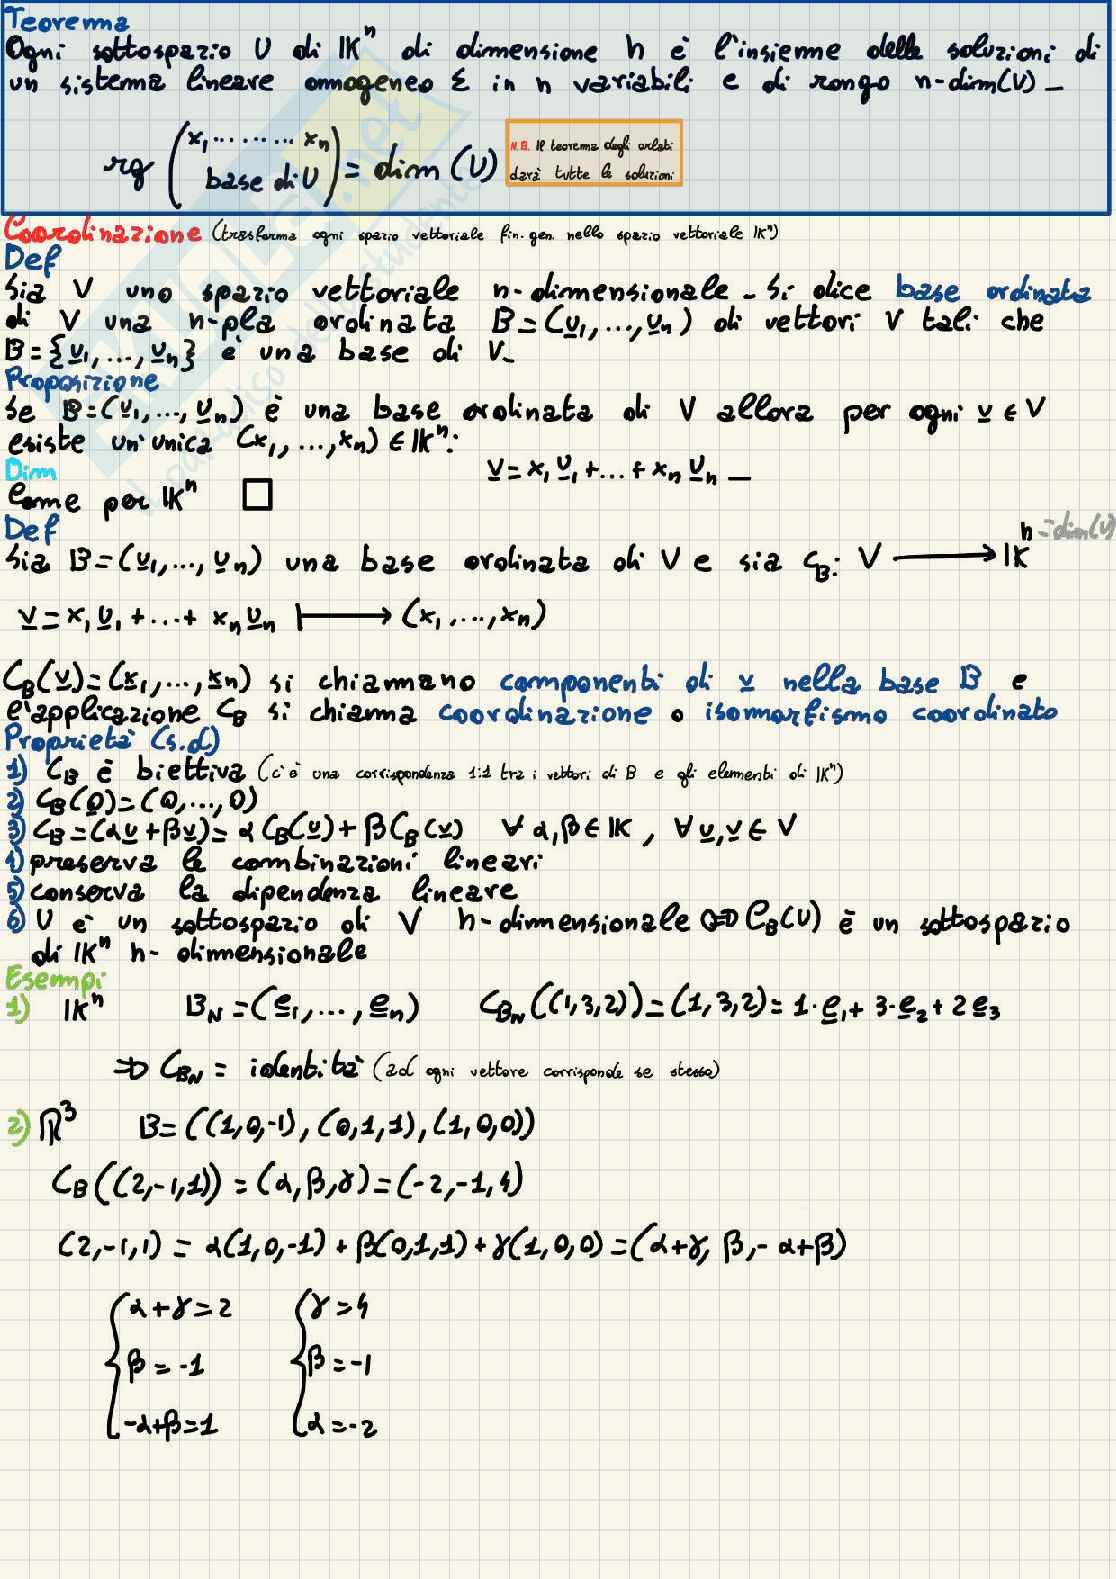 Teorema
Ogni sottospazio U di 𝕂ⁿ di dimensione h è l'insieme delle soluzioni di
un sistema lineare omogeneo Σ in n variabili e di rango n-dim(U) _
rg ( x₁ ......... xₙ
base di U ) = dim (U)
N.B. Il teorema degli orlati
darà tutte le soluzioni
Coordinazione (trasforma ogni spazio vettoriale fin. gen. nello spazio vettoriale 𝕂ⁿ)
Def
Sia V uno spazio vettoriale n-dimensionale _ Si dice base ordinata
di V una n-pla ordinata B=(v₁,...,vₙ) di vettori V tali che
B={v₁,...,vₙ} è una base di V_
Proposizione
Se B=(v₁,...,vₙ) è una base ordinata di V allora per ogni v ∈ V
esiste un'unica (x₁,...,xₙ) ∈ 𝕂ⁿ:
v = x₁v₁+...+ xₙvₙ _
Dim
Come per 𝕂ⁿ □
Def
Sia B=(v₁,...,vₙ) una base ordinata di V e sia C_B: V ⟶ 𝕂ⁿ n=dim(V)
v = x₁v₁+...+ xₙvₙ ⟼ (x₁,...,xₙ)
C_B(v)=(x₁,...,xₙ) si chiamano componenti di v nella base B e
l'applicazione C_B si chiama coordinazione o isomorfismo coordinato
Proprietà (s.d)
1) C_B è biettiva (c'è una corrispondenza 1:1 tra i vettori di B e gli elementi di 𝕂ⁿ)
2) C_B(0)=(0,...,0)
3) C_B=(αu+βv)= α C_B(u)+ β C_B(v) ∀ α,β ∈ 𝕂, ∀ u,v ∈ V
4) preserva le combinazioni lineari
5) conserva la dipendenza lineare
6) U è un sottospazio di V h-dimensionale ⇔ C_B(U) è un sottospazio
di 𝕂ⁿ h-dimensionale
Esempi
1) 𝕂ⁿ B_N=(e₁,...,eₙ) C_B_N((1,3,2))=(1,3,2)= 1·e₁+ 3·e₂+ 2e₃
⇒ C_B_N = identità (ad ogni vettore corrisponde se stesso)
2) ℝ³ B=((1,0,-1), (0,1,1), (1,0,0))
C_B((2,-1,1)) = (α,β,γ)=(-2,-1,4)
(2,-1,1) = α(1,0,-1) + β(0,1,1)+γ(1,0,0)=(α+γ, β,-α+β)
{ α+γ=2 { γ=4
β = -1 β = -1
-α+β=1 α = -2